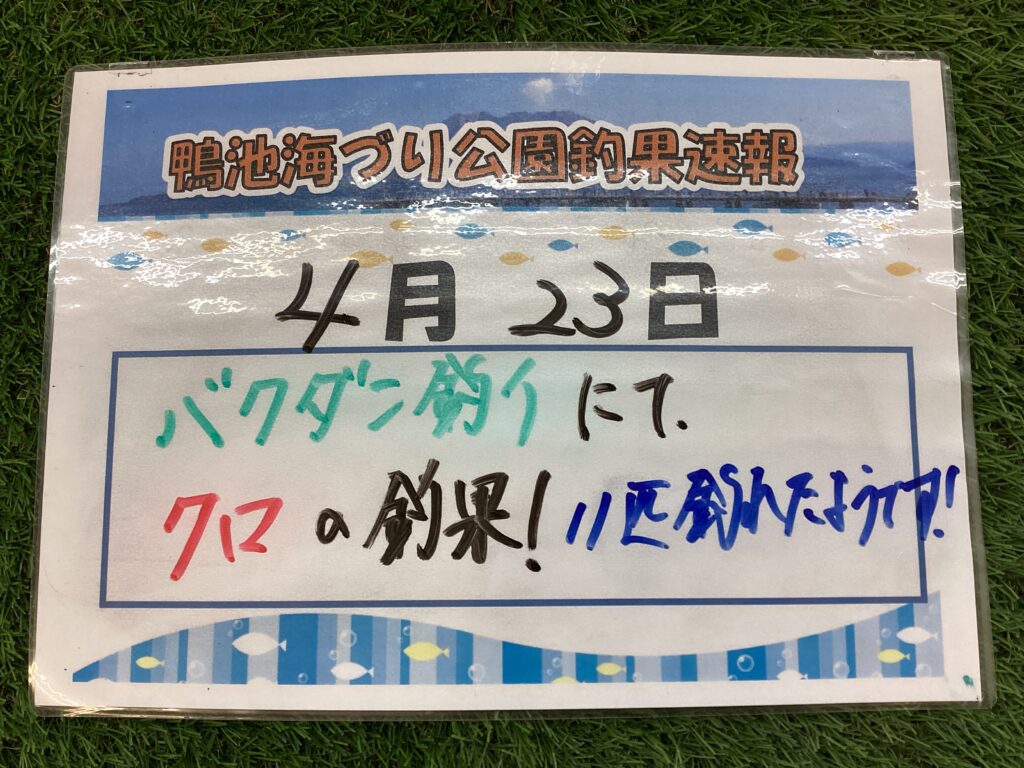 鴨池海づり公園釣果速報
4月 23日
バクダン釣りにて.
クロの釣果! 11匹釣れたようです!